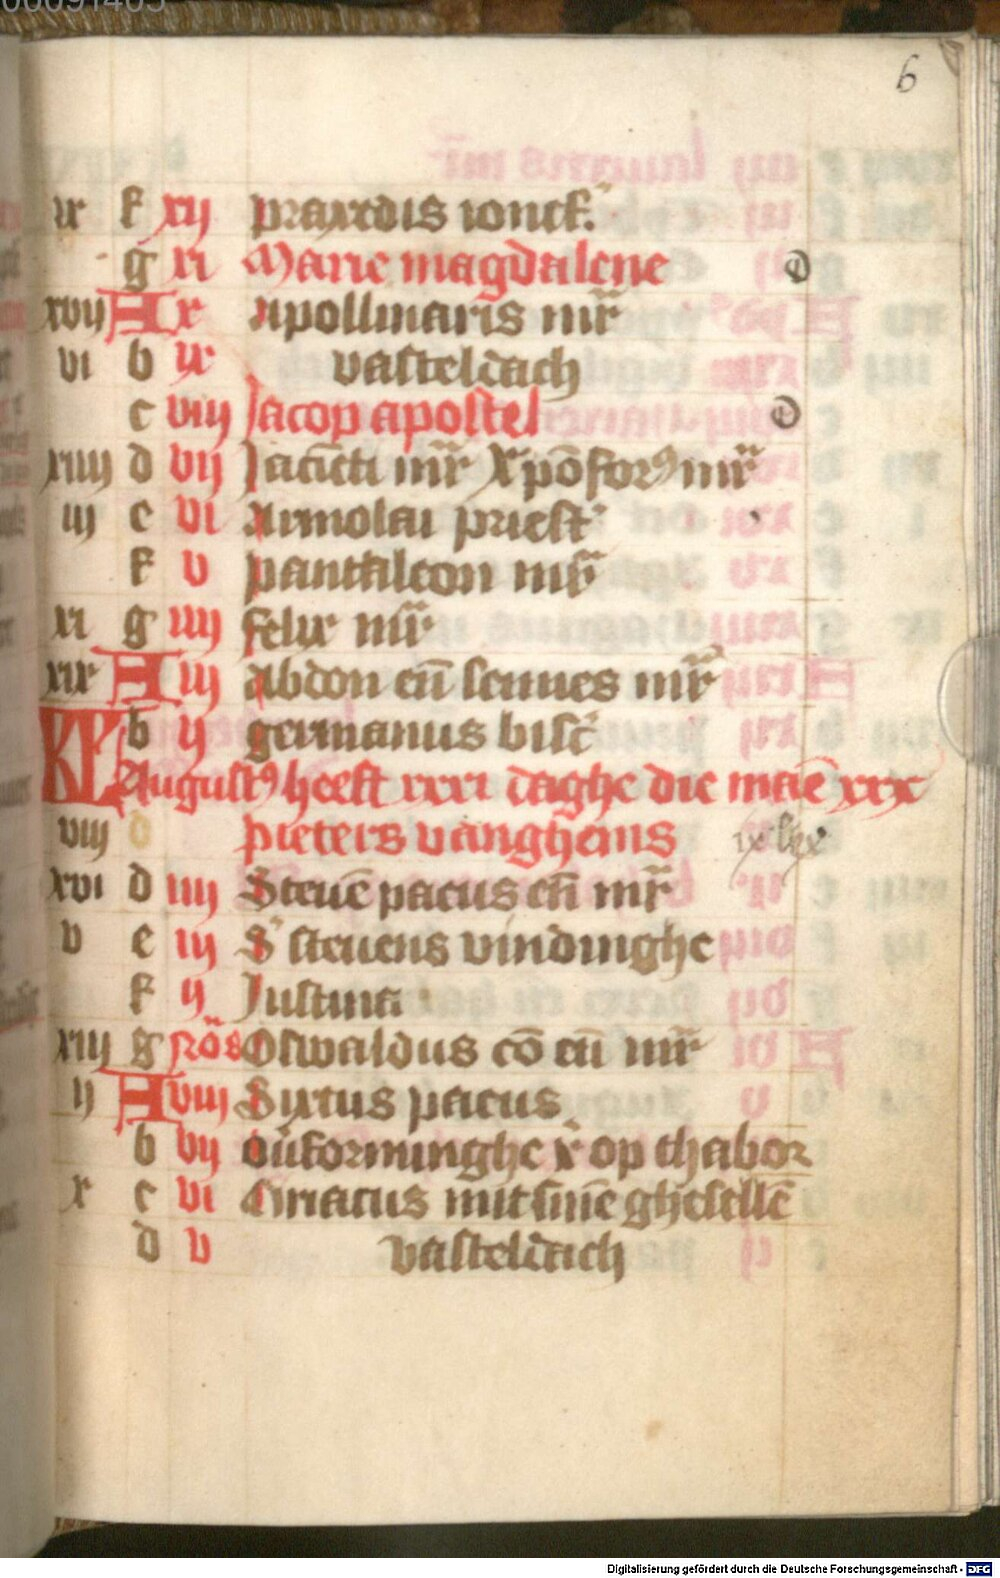 00091405
6
ix f xij praxedis ioncf.
g xi Marie magdalene
xvij A x Apollinaris mr̄
vi b ix vasteldach
c viij Jacop apostel
xiiij d vij Jacincti mr̄ Xp̄ofor⁹ mr̄
iij e vi Armolai priest
f v pantaleon mr̄
xi g iiij felix mr̄
xix A iij Abdon en̄ sennes mr̄
b ij germanus bisc̄
KL August⁹ heeft xxxi daghe die maē xxx
viij c pieters vanghenis
xvi d iiij Steuē paeus en̄ mr̄
v e iij S steuens vindinghe
f ij Justina
xiij g nōs Oswaldus cō en̄ mr̄
ij A viij Sixtus paeus
b vij ou̅forminghe x̄ op thabor
x c vi Ciriacus mit sinē ghesellē
d v vasteldach
Digitalisierung gefördert durch die Deutsche Forschungsgemeinschaft - DFG